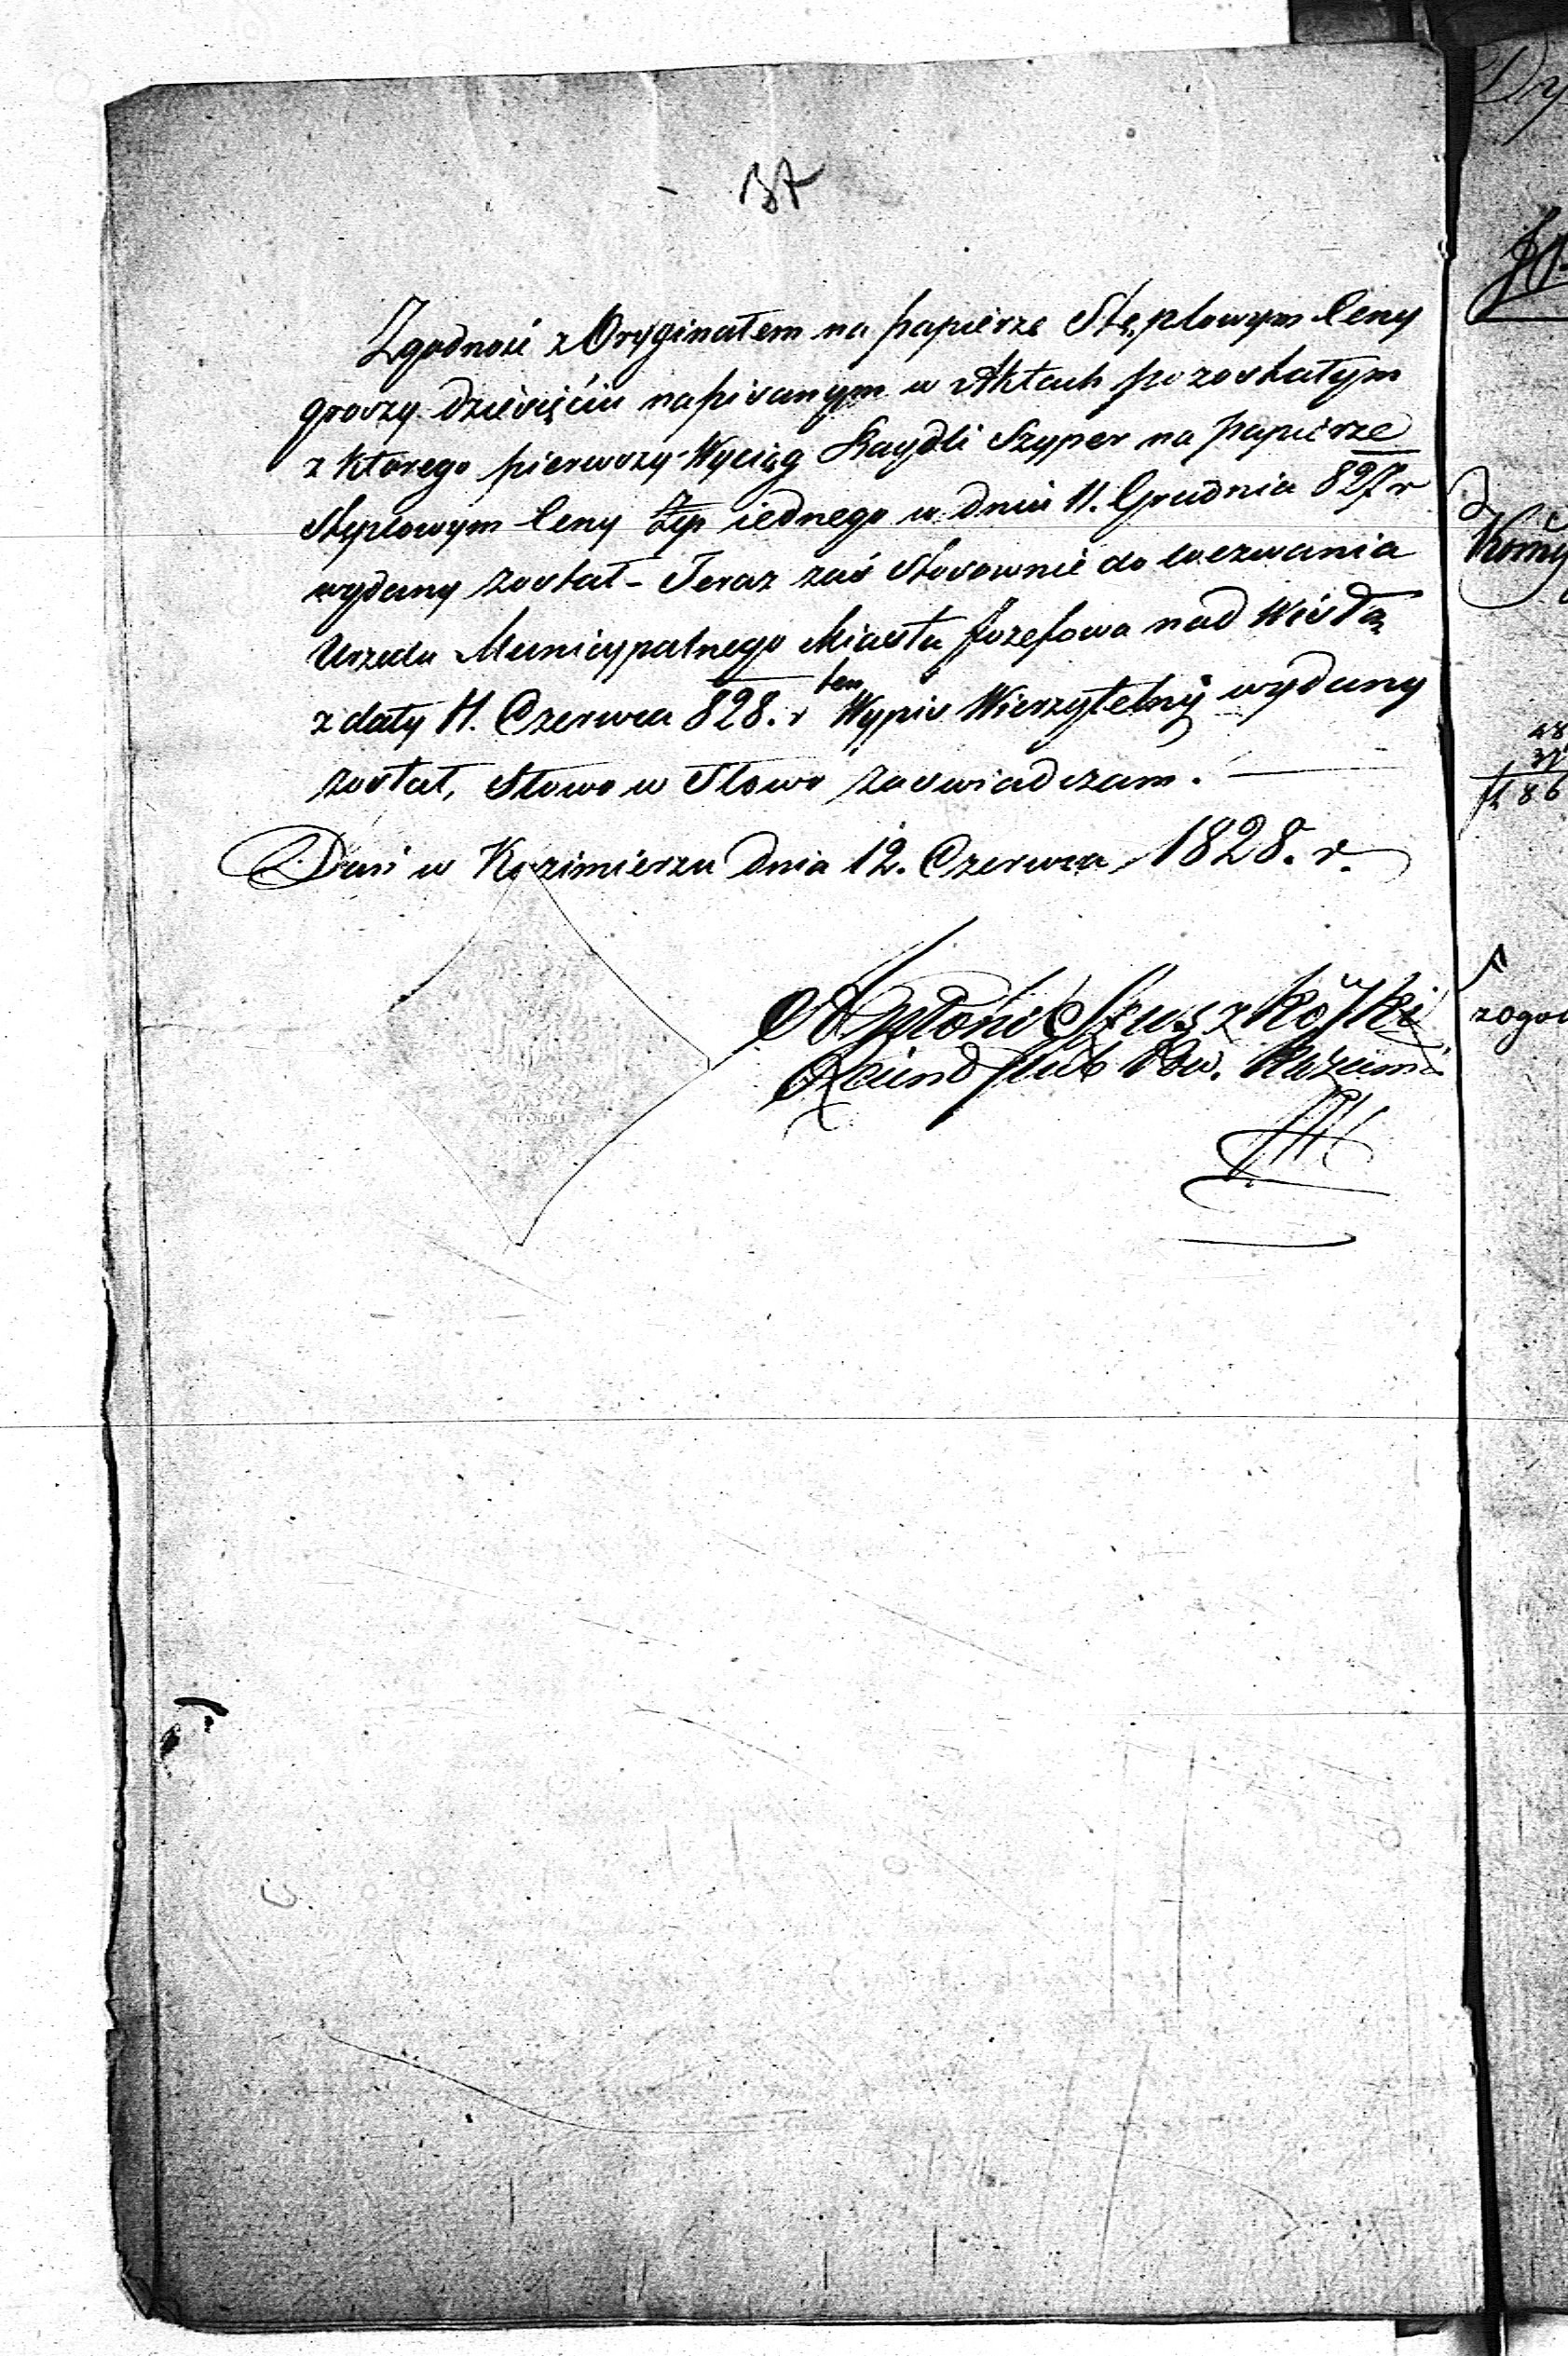 37
Zgodność z Oryginałem na papierze Stęplowym Ceny
groszy dziesięciu napisanym w Aktach pozostałym
z którego pierwszy Wyciąg Szyper na papierze
Stęplowym Ceny Złp iednego w dniu 11. Grudnia 827 r
wydany został - Teraz zaś Stosownie do wezwania
Urzędu Municypalnego Miasta Jozefowa nad Wisłą
z daty 11. Czerwca 828. r ten Wypis Wierzytelny wydany
został, Słowo w Słowo zaswiadczam.
Dan w Kazimierzu dnia 12. Czerwca 1828. r.
Antoni
48
37
86